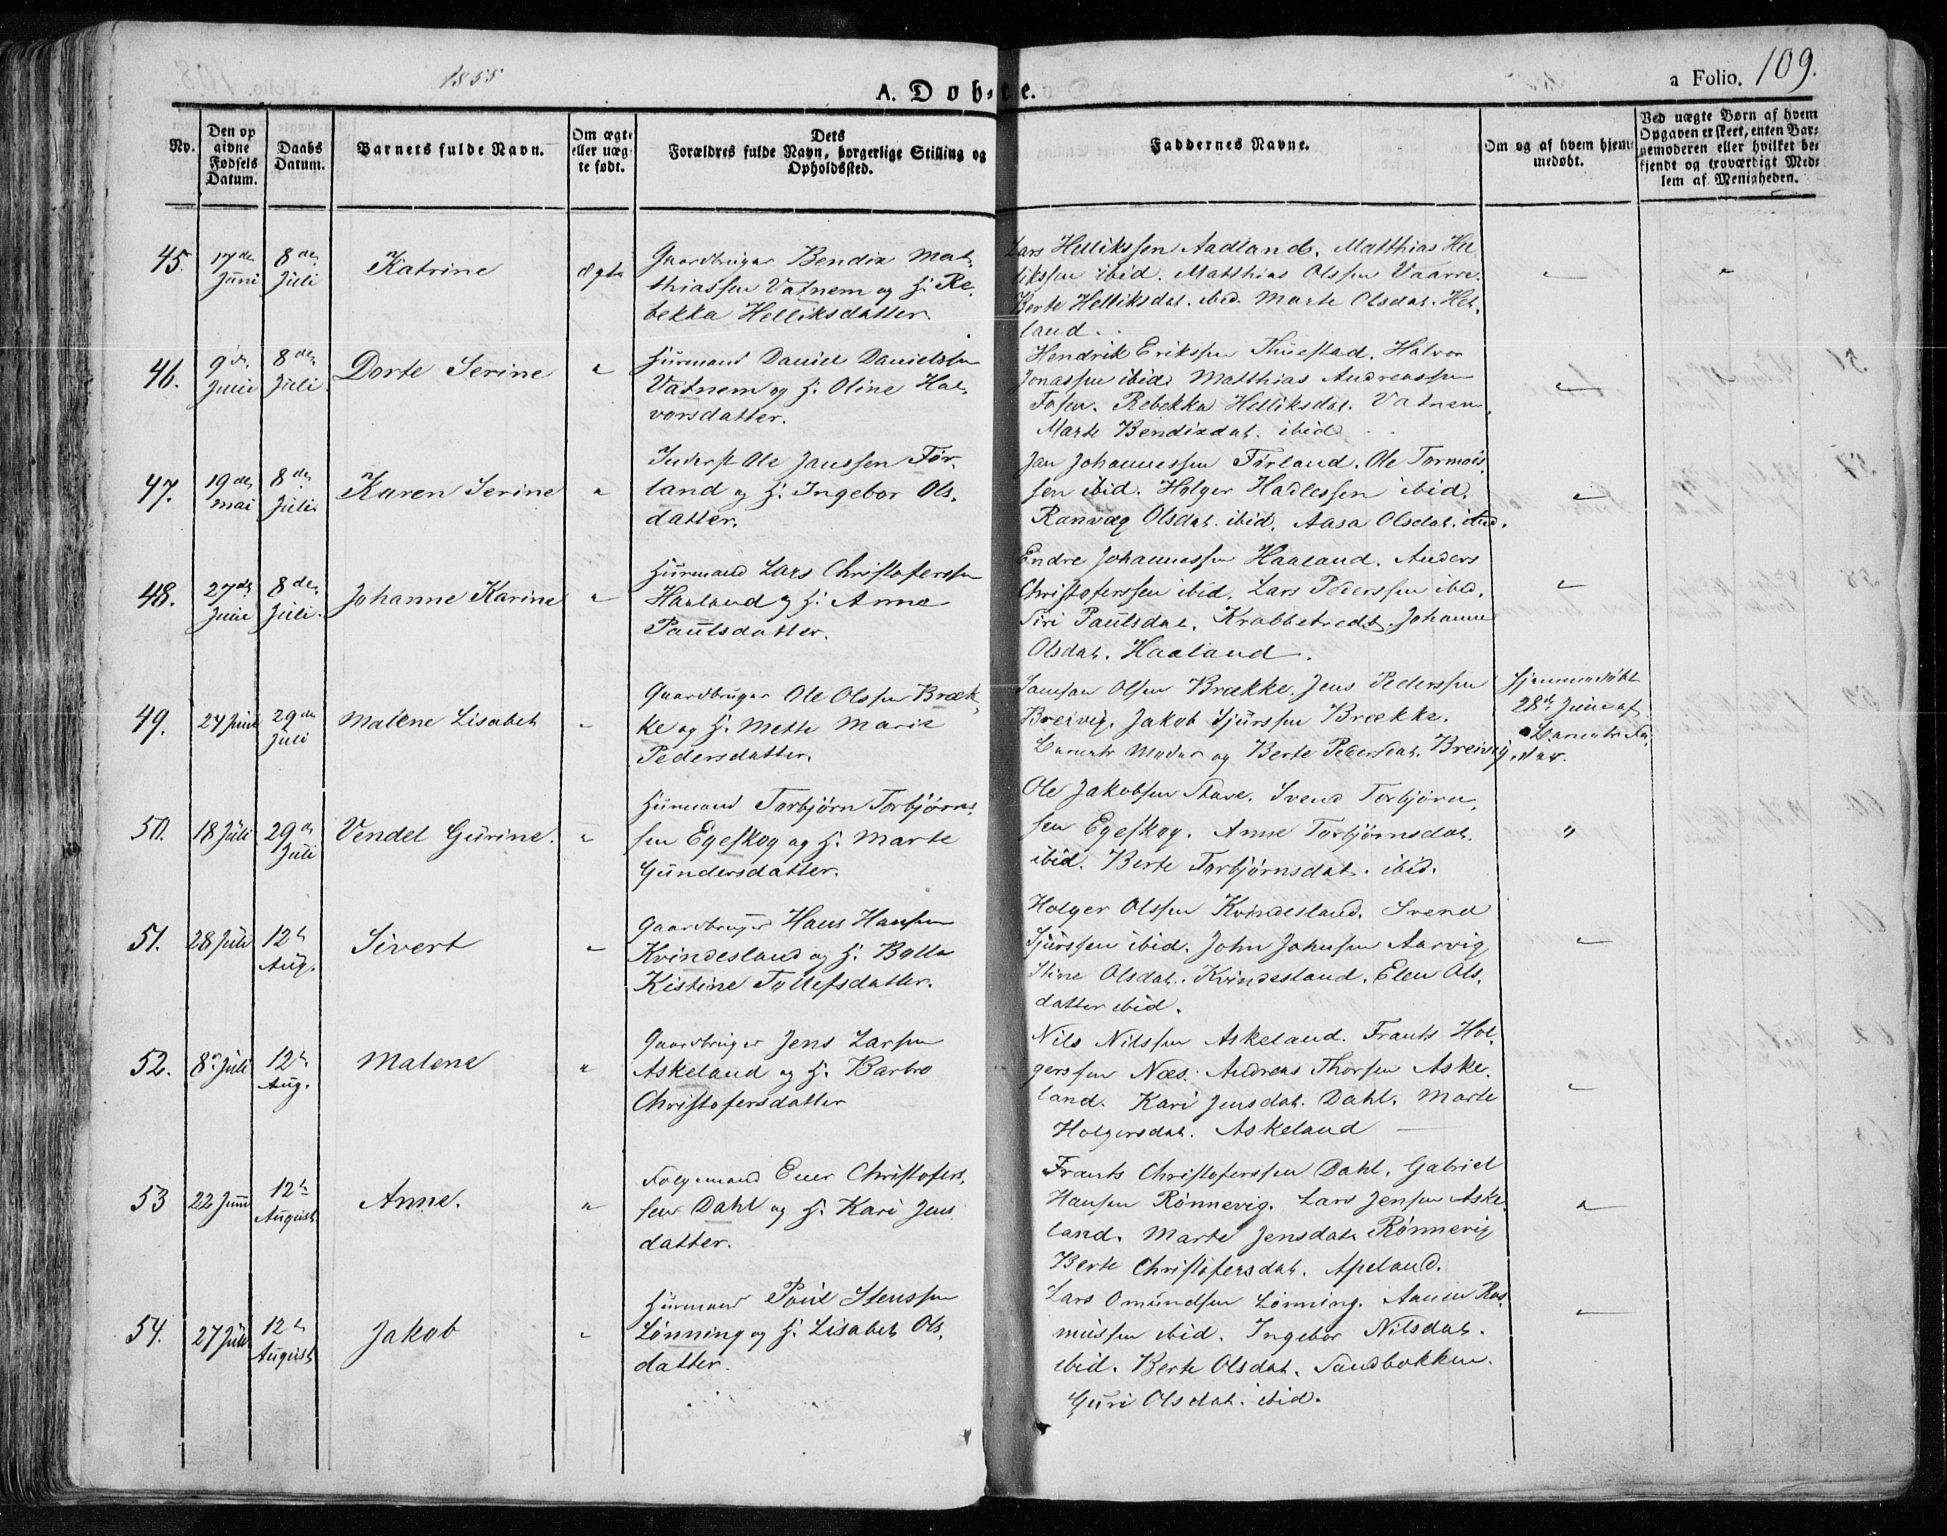 1855
A. Døbte.
a Folio. 109.
No. Den opgivne Fødsels Datum. Daabs Datum. Barnets fulde Navn. Om ægte eller uægte født. Dets Forældres fulde Navn, borgerlige Stilling og Opholdssted. Faddernes Navne. Om og af hvem hjemmedøbt. Ved uægte Børn af hvem Opgaven er skeet, enten Barnemoderen eller hvilket bekjendt og troværdigt Medlem af Menigheden.
45. 17de Juni 8de Juli Katrine ægte
Gaardbruger Bendix Mat-
thiassen Vatnem og H. Re-
bekka Helliksdatter.
Lars Hellikssen Aadland. Matthias Hel
likssen ibid. Matthias Olssen Vaarre.
Berte Helliksdat. ibid. Marte Olsdat. Het-
land.
46. 9de Juni 8de Juli. Dorte Serine "
Huusmand Daniel Danielssen
Vatnem og H. Oline Hal-
vorsdatter.
Hendrik Erikssen Thuestad. Halvor
Jonassen ibid. Matthias Andreassen
Fosen. Rebekka Helliksdat. Vatnem.
Marte Bendixdat. ibid
47. 19de mai 8de Juli. Karen Serine "
Inderst Ole Janssen Før-
land og H. Ingebor Ols-
datter.
Jan Johannessen Førland. Ole Tormods-
sen ibid. Holger Hadlessen ibid.
Ranvæg Olsdat. ibid. Aasa Olsdat. ibid.
48. 27de Juni 8de Juli. Johanne Karine "
Huusmand Lars Christoferssen
Haaland og H. Anne
Paulsdatter.
Endre Johannessen Haaland. Anders
Christoferssen ibid. Lars Pederssen ibid.
Siri Paulsdat. Krabbetredt. Johanne
Olsdat. Haaland.
49. 24 Juni 29de Juli Malene Lisabet "
Gaardbruger Ole Olssen Bræk-
ke og H. Mette Marie
Pedersdatter.
Samson Olsen Brække. Jens Pederssen
Breivig. Jakob Sjurssen Brække.
Barnets Moder og Berte Pedersdat. Breivig.
Hjemmedøbt
28de Juni af
Barnets Fa-
der.
50. 18 Juli 29de Juli Vendel Gurine. "
Huusmand Torbjørn Torbjørns-
sen Egeskog og H. Marte
Gundersdatter.
Ole Jakobsen Stave. Svend Torbjørn-
sen Egeskog. Anne Torbjørnsdat.
ibid. Berte Torbjørnsdat. ibid.
51. 28 Juli 12te Aug. Sivert "
Gaardbruger Hans Hansen
Kvindesland og H. Bolla
Kistine Tollefsdatter.
Holger Olssen Kvindesland. Svend
Sjurssen ibid. John Johnsen Aarvig
Stine Olsdat. Kvindesland. Elen Ols-
datter ibid.
52. 8de Juli 12te Aug. Malene "
Gaardbruger Jens Larsen
Askeland og H. Barbro
Christofersdatter
Nils Nilssen Askeland. Frants Hol-
gerssen Næs. Andreas Thorsen Aske-
land. Kari Jensdat. Dahl. Marte
Holgersdat. Askeland
53 22 Juni 12te August Anne. "
Folgemand Ener Christofers-
sen Dahl og H. Kari Jens
datter.
Frants Christoferssen Dahl. Gabriel
Hansen Rønnevig. Lars Jensen Aske-
land. Marte Jensdat. Rønnevig
Berte Christofersdat. Apeland.
54. 27 Juli 12te August Jakob "
Huusmand Poul Stenssen
Lønning og H. Lisabet Ols-
datter.
Lars Omundsen Lønning. Aanen Ras-
mussen ibid. Ingebor Nilsdat.
ibid. Berte Olsdat. Sandbokken.
Guri Olsdat. ibid.